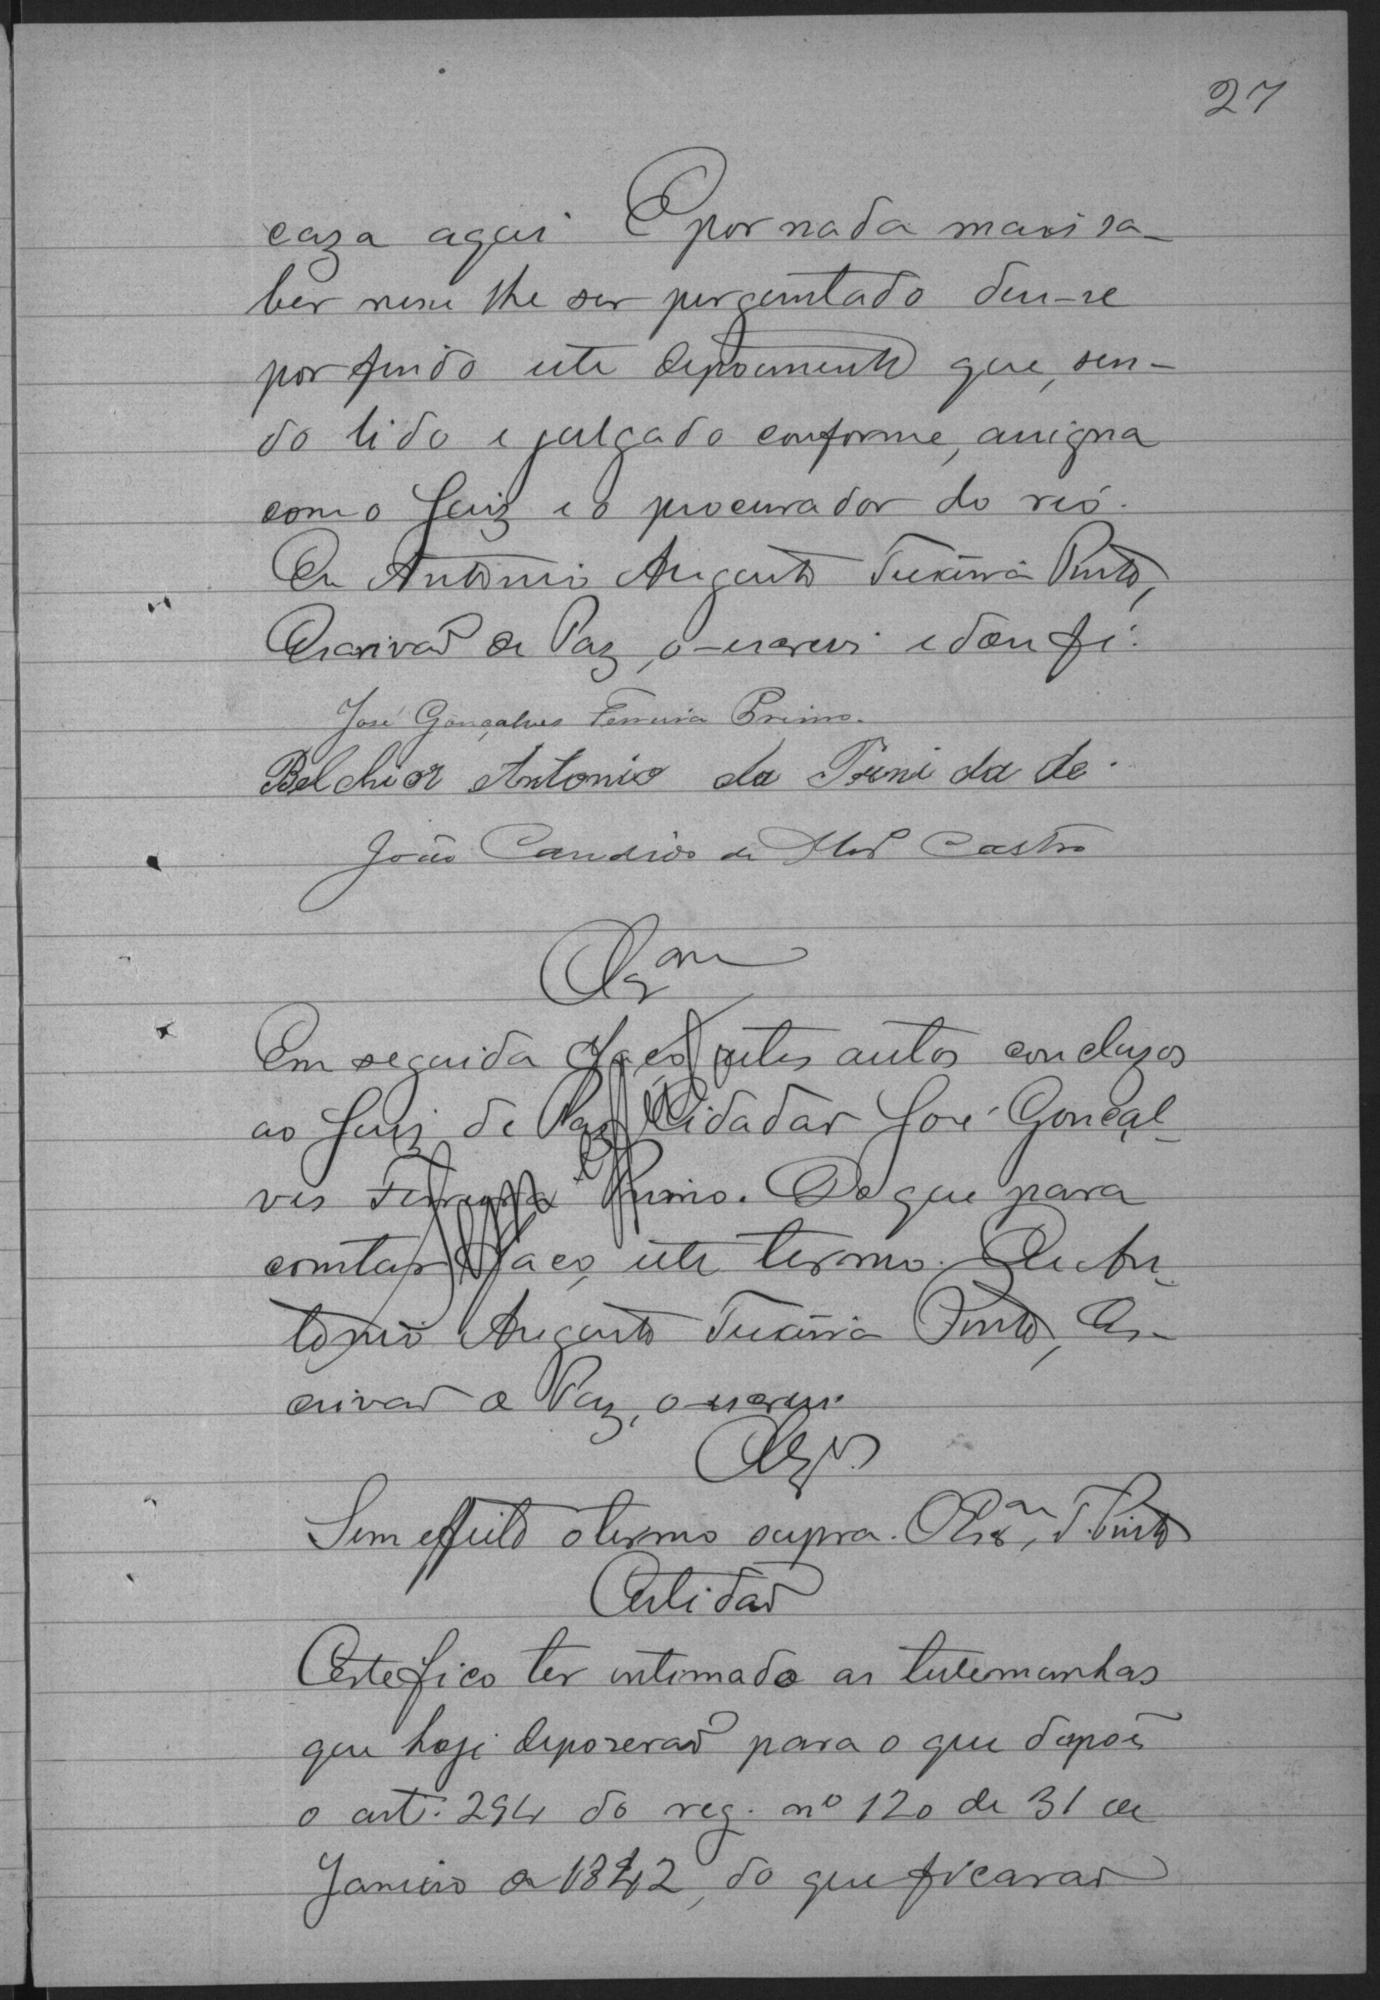 27
caza aqui E por nada mais sa-
ber nem lhe ser perguntado deu-se
por findo este depoimento que, sen-
do lido e julgado conforme, assigna
com o Juiz e o procurador do reó.
Eu Antonio Augusto Teixeira Pinto,
Escrivaõ de Paz, o-escrevi e dou fé.
José Gonçalves Ferreira Primo.
Belchior Antonio da Trindade.
João Candido de Castro
Em seguida faço estes autos concluzos
ao Juiz de Paz Cidadaõ José Gonçal-
ves Ferreira Primo. Do que para
constar faço este termo. Eu An-
tonio Augusto Teixeira Pinto, Es-
crivaõ de Paz, o-escrevi.
Sem effeito o termo supra. O Escam, T. Pinto
Certidaõ
Certefico ter intimado as testemunhas
que hoje depozeraõ para o que dispoẽ
o art. 294 do reg. nº 120 de 31 de
Janeiro de 1842, do que ficaraõ